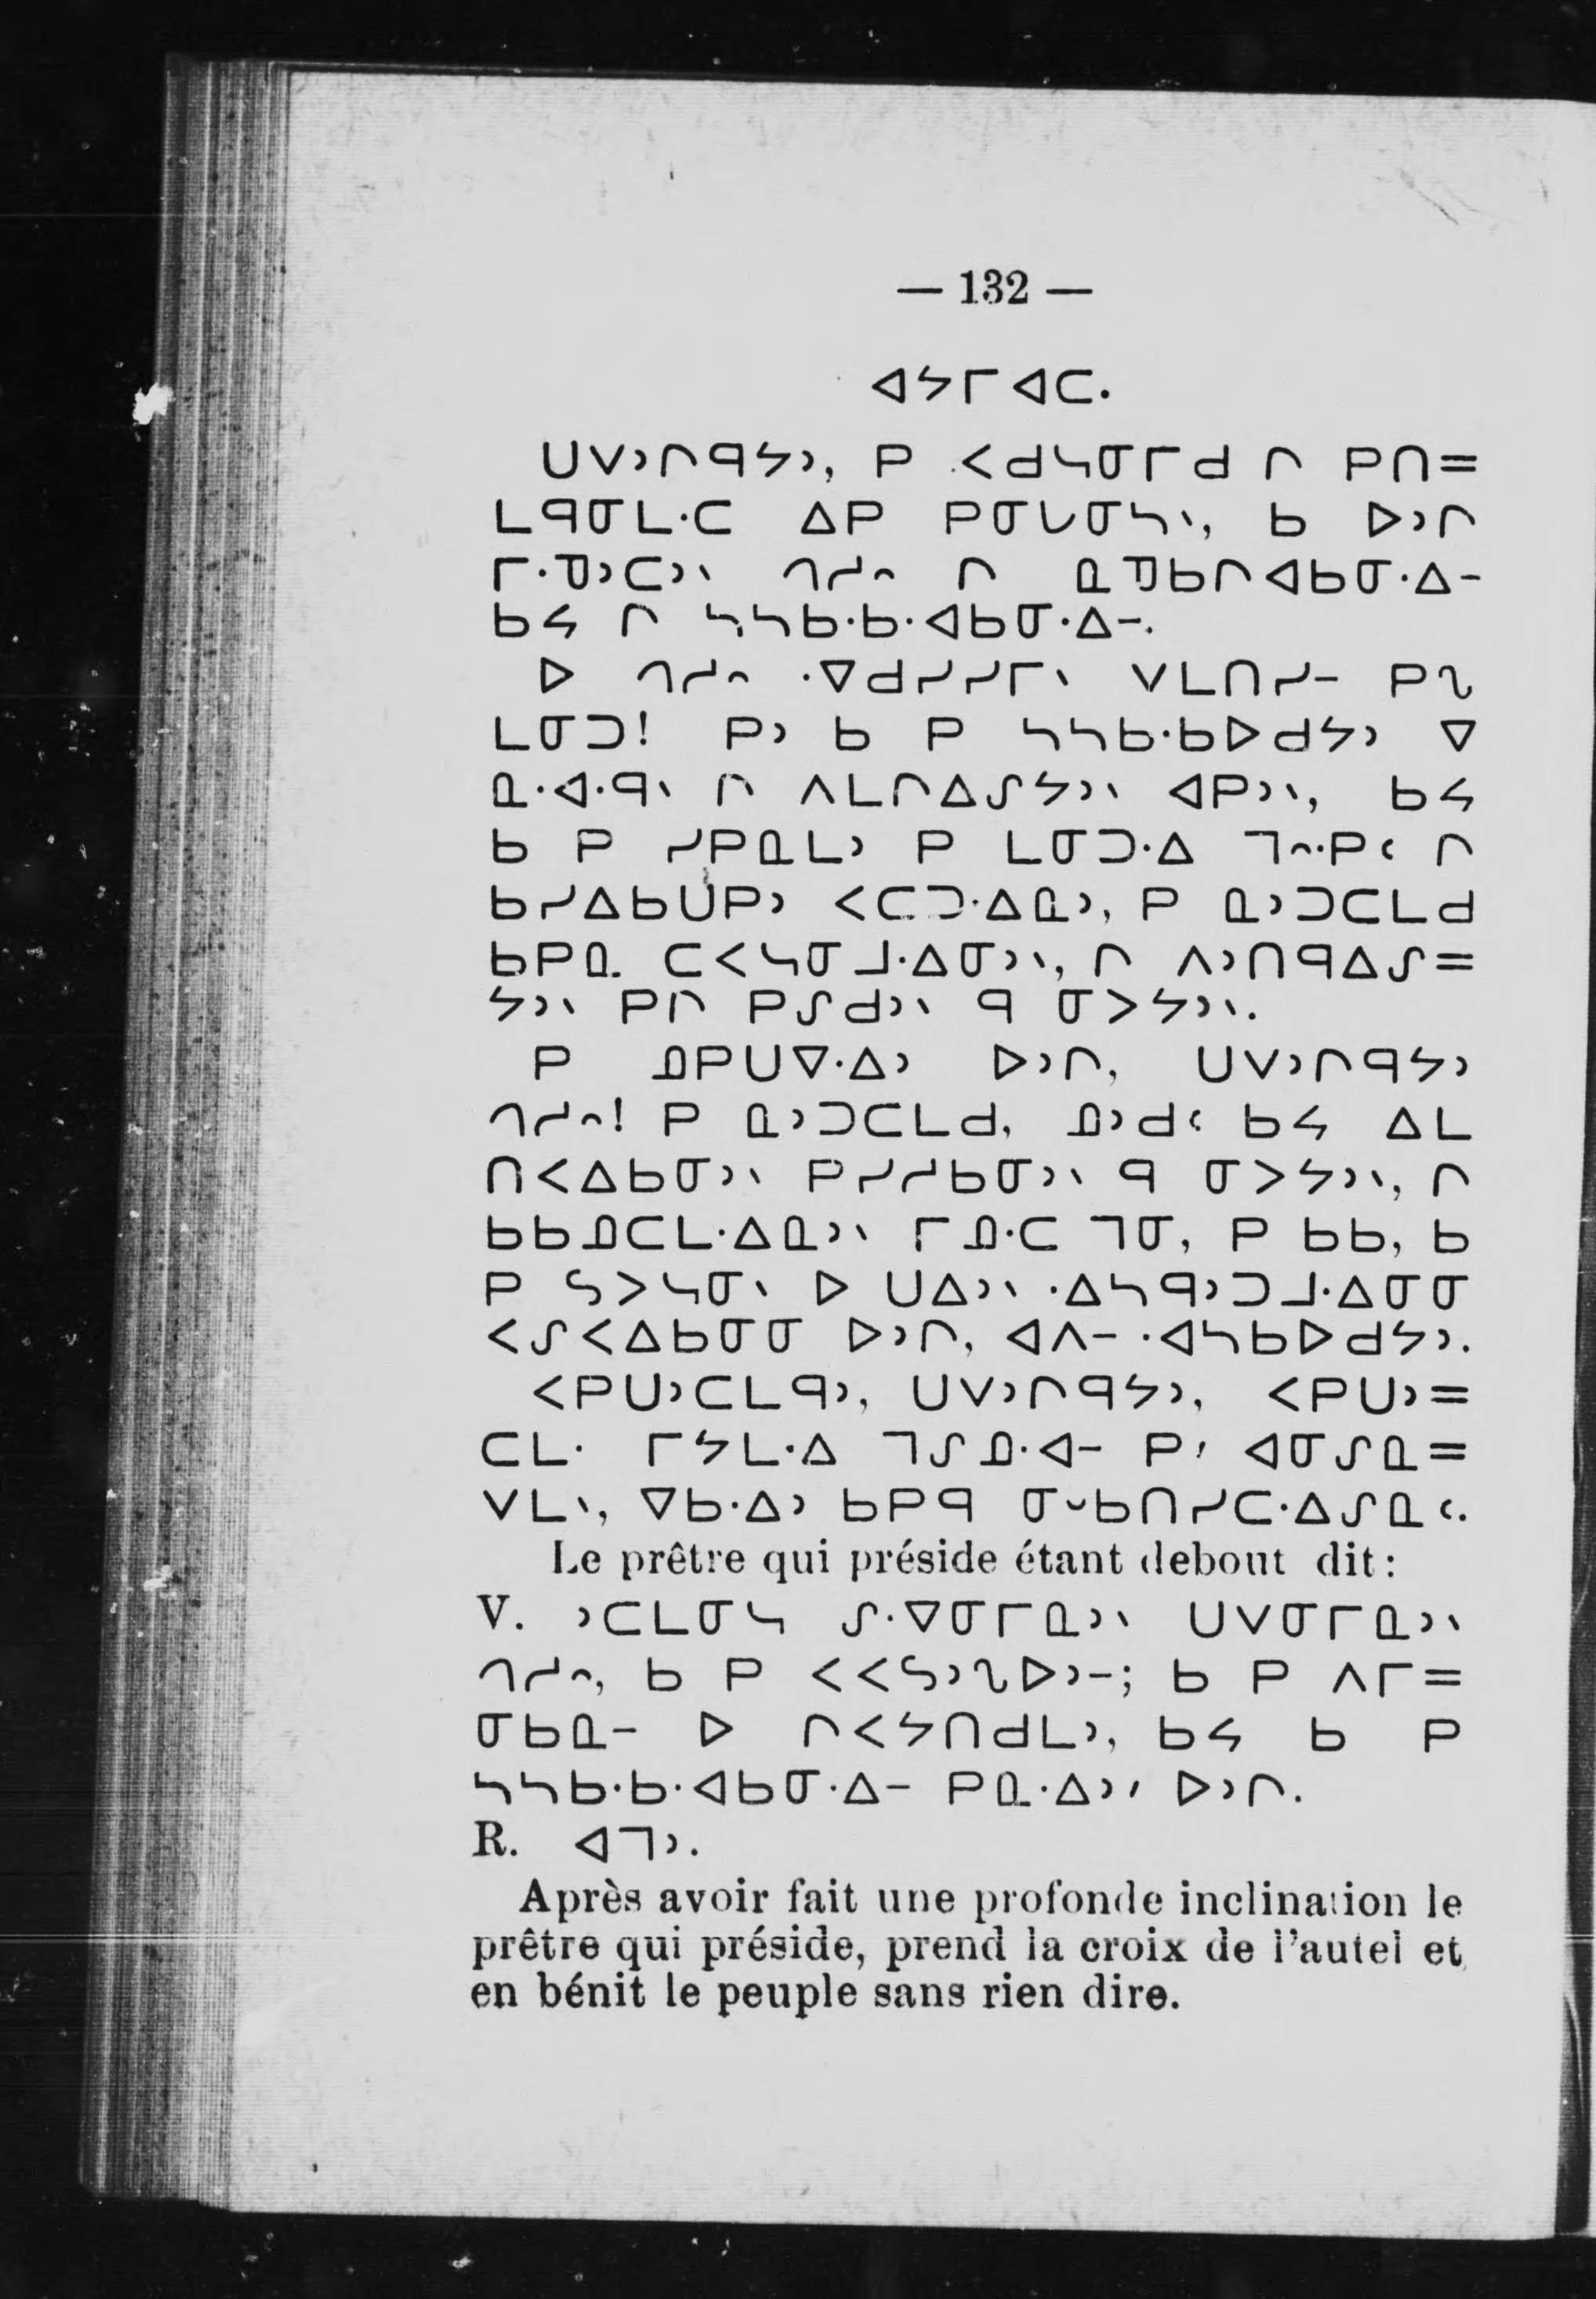 — 132 —
ᐊᔭᒥᐊᑕ.
ᑌᐯᐣᒋᑫᔭᐣ, ᑭ ᐸᑯᓴᓂᒥᑯ ᒋ ᑭᑎ=
ᒪᑫᓂᒪᐧᑕ ᐃᑭ ᑭᓂᒐᓂᓴᐠ, ᑲ ᐅᐣᒋ
ᒥᐧᑯᐣᑕᐣᐠ ᒉᓱᐢ ᒋ ᓇᑯᑲᒋᐊᑲᓂᐧᐃᐨ
ᑲᔦ ᒋ ᓴᓴᑲᐧᑲᐧᐊᑲᓂᐧᐃᐨ.
ᐅ ᒉᓱᐢ ᐧᐁᑯᓯᓯᒥᐠ ᐯᒪᑎᓯᐨ ᑭᔐ
ᒪᓂᑐ! ᑭᐣ ᑲ ᑭ ᓴᓴᑲᐧᑲᐅᑯᔭᐣ ᐁ
ᓇᐧᐊᐧᑫᐠ ᒋ ᐱᒪᒋᐃᔑᔭᐣᐠ ᐊᑭᐣᐠ, ᑲᔦ
ᑲ ᑭ ᓯᑭᓇᒪᐣ ᑭ ᒪᓂᑐᐧᐃ ᒣᐢᐧᑭᑦ ᒋ
ᑲᓯᐃᑲᑌᑭᐣ ᐸᑕᑐᐧᐃᓇᐣ, ᑭ ᓇᐣᑐᑕᒪᑯ
ᑲᑭᓇ ᑕᐸᓴᓂᒧᐧᐃᓂᐣᐠ, ᒋ ᐱᐣᑎᑫᐃᔑ=
ᔭᐣᐠ ᑭᒋ ᑭᔑᑯᐣᐠ ᑫ ᓂᐳᔭᐣᐠ.
ᑭ ᓄᑭᑌᐁᐧᐃᐣ ᐅᐣᒋ, ᑌᐯᐣᒋᑫᔭᐣ
ᒉᓱᐢ! ᑭ ᓇᐣᑐᑕᒪᑯ, ᓄᐣᑯᑦ ᑲᔦ ᐃᒪ
ᑎᐸᐃᑲᓂᐣᐠ ᑭᓯᓱᑲᓂᐣᐠ ᑫ ᓂᐳᔭᐣᐠ, ᒋ
ᑲᑲᓄᑕᒪᐧᐃᓇᐣᐠ ᒥᓄᐧᑕ ᒣᓂ, ᑭ ᑲᑲ, ᑲ
ᑭ ᔕᐳᓴᓂᐠ ᐅ ᑌᐃᐣᐠ ᐧᐃᓴᑫᐣᑐᒧᐧᐃᓂᓂ
ᐸᔑᐸᐃᑲᓂᓂ ᐅᐣᒋ, ᐊᐱᐨ ᐧᐊᓴᑲᐅᑯᔭᐣ.
ᐸᑭᑌᐣᑕᒪᑫᐣ, ᑌᐯᐣᒋᑫᔭᐣ, ᐸᑭᑌᐣ=
ᑕᒪᐧ ᒥᔭᒪᐧᐃ ᒣᔑᓄᐧᐊᐨ ᑭᐟ ᐊᓂᔑᓇ=
ᐯᒪᐠ, ᐁᑲᐧᐃᐣ ᑲᑭᑫ ᓂᐡᑲᑎᓯᑕᐧᐃᔑᓇᑦ.
Le prêtre qui préside étant debout dit:
V. ᐣᑕᒪᓂᓴ ᔑᐧᐁᓂᒥᓇᐣᐠ ᑌᐯᓂᒥᓇᐣᐠ
ᒉᓱᐢ, ᑲ ᑭ ᐸᐸᔕᐣᔐᐅᐣᐨ; ᑲ ᑭ ᐱᒥ=
ᓂᑲᓇᐨ ᐅ ᒋᐸᔭᑎᑯᒪᐣ, ᑲᔦ ᑲ ᑭ
ᓴᓴᑲᐧᑲᐧᐊᑲᓂᐧᐃᐨ ᑭᓇᐧᐃᐣᐟ ᐅᐣᒋ.
R. ᐊᒣᐣ.
Après avoir fait une profonde inclination le
prêtre qui préside, prend la croix de l'autel et
en bénit le peuple sans rien dire.